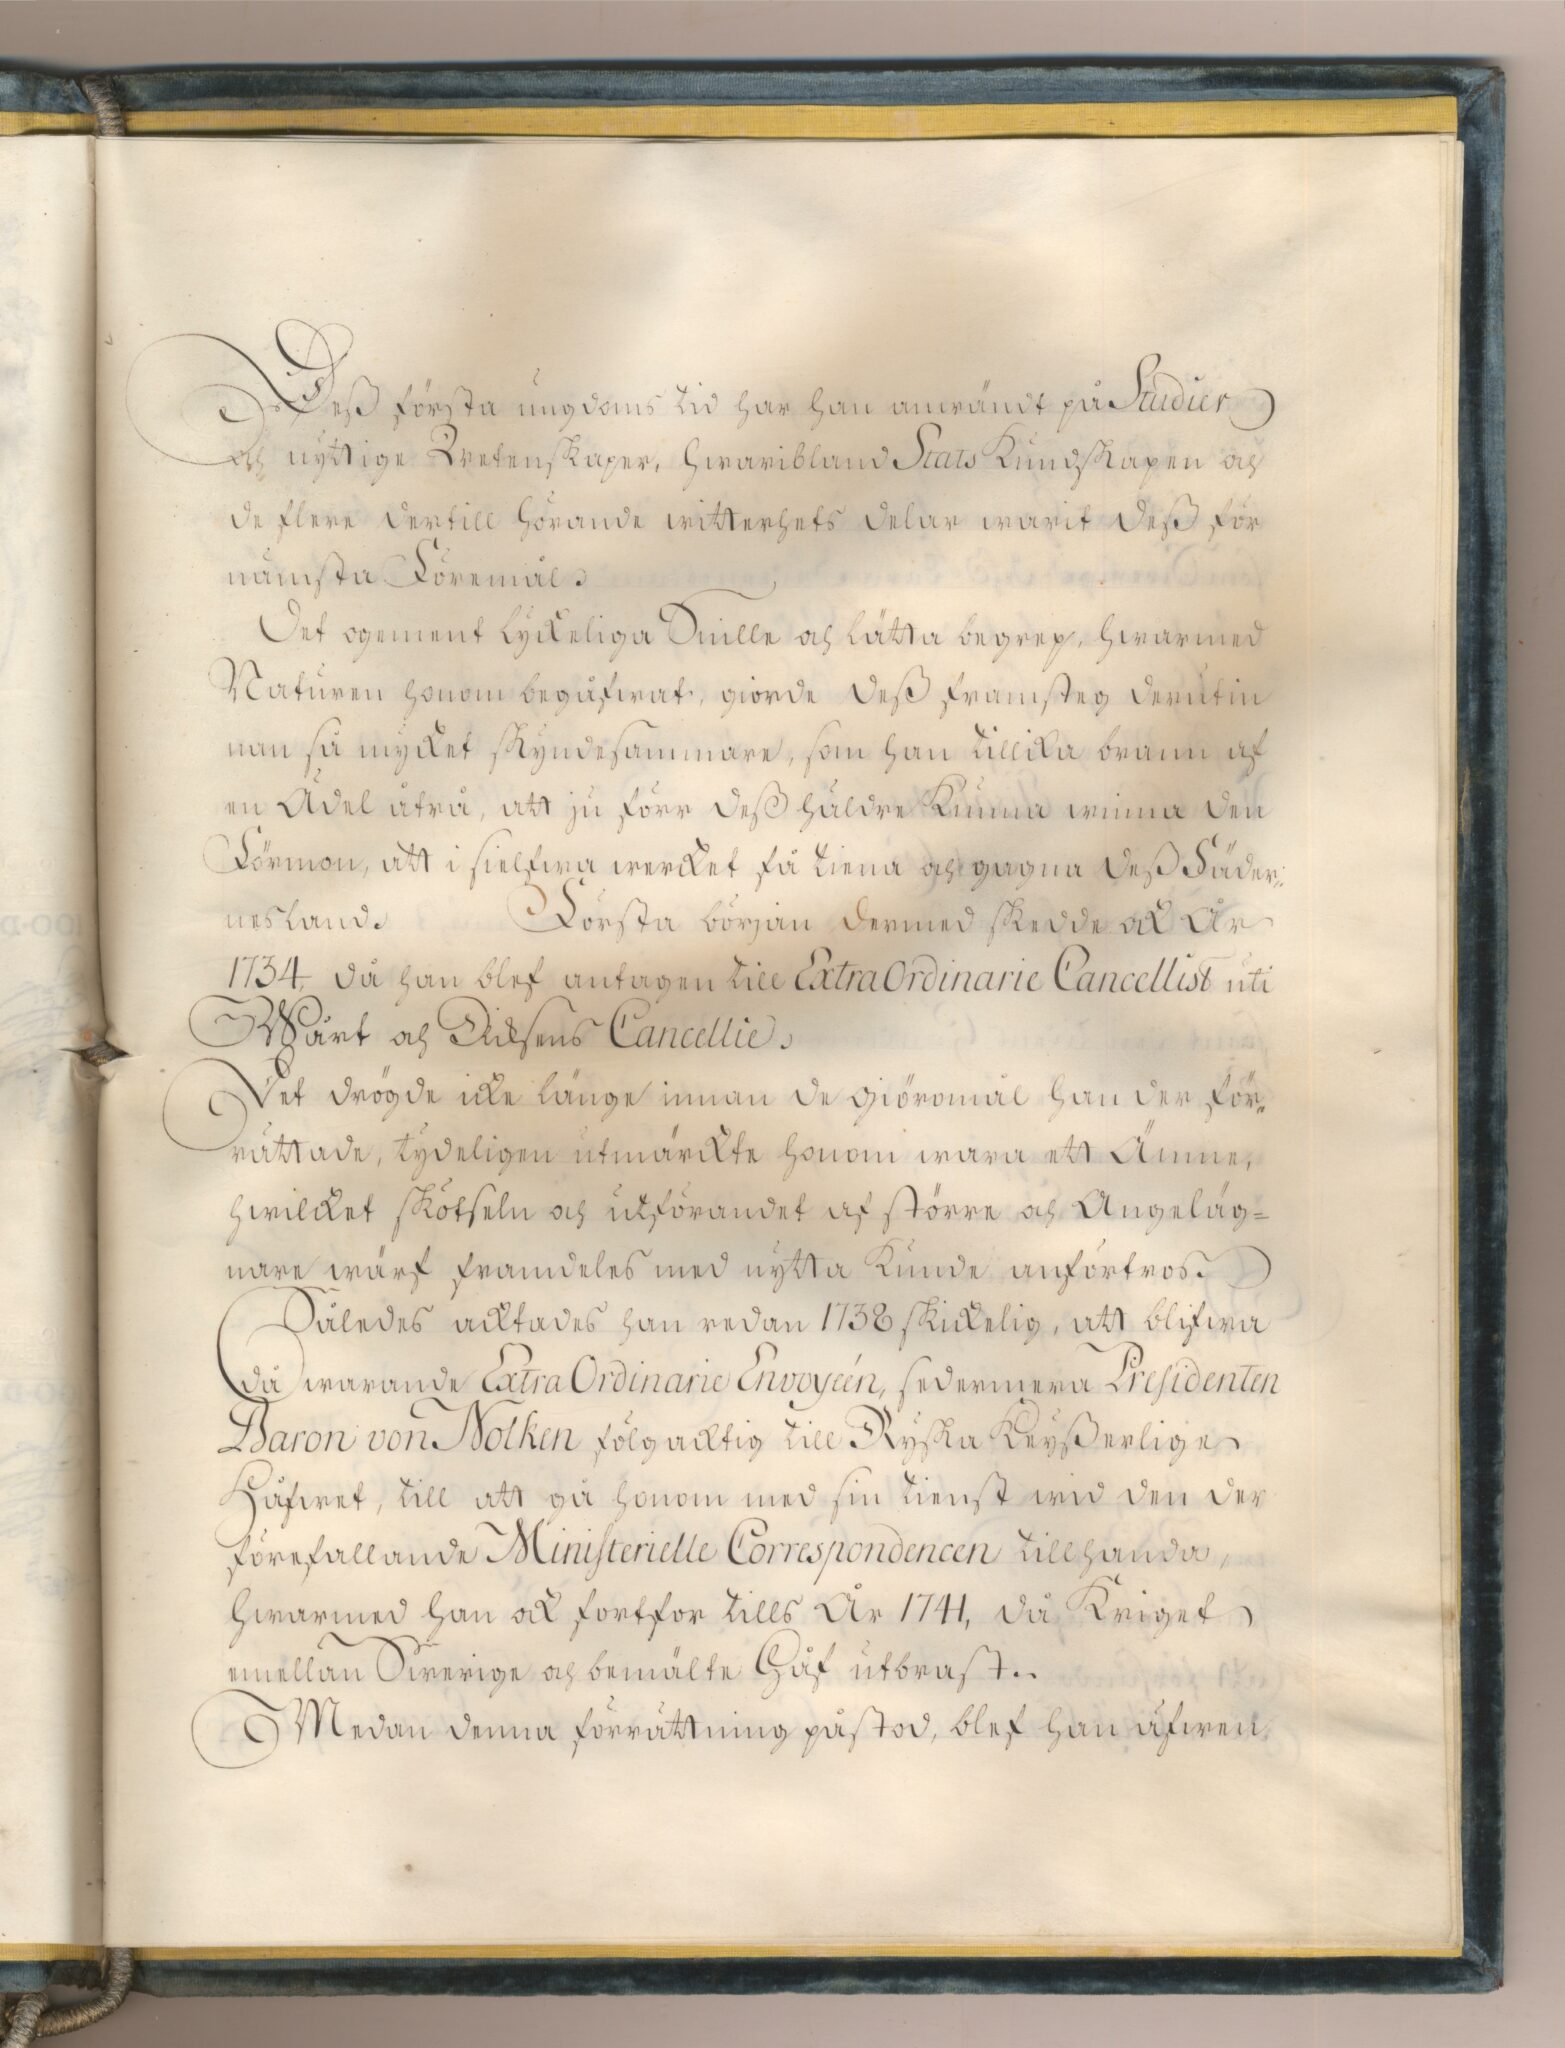 Deß första ungdoms tid har han anwändt på Studier
och nyttige Wetenskaper, hwaribland Stats Kundskapen och
de flere dertill hörande witterhets delar warit deß för
nämsta Föremål.
Det ogement lyckeliga Snille och lätta begrep, hwarmed
Naturen honom begåfwat, giorde deß framsteg derutin
nan så mycket skyndesammare, som han tillika brann af
en Ädel åtrå, att ju förr deß häldre kunna winna den
Förmon, att i sielfwa wercket få tiena och gagna deß Fäder=
nesland. Första början dermed skedde ock År
1734, då han blef antagen till Extra Ordinarie Cancellist uti
Wårt och Riksens Cancellie.
Det drögde icke länge innan de giöromål han der för=
rättade, tydeligen utmärckte honom wara ett Ämne,
hwilcket skötseln och utförandet af större och Angeläg=
nare wärf framdeles med nytta kunde anförtros.
Således acktades han redan 1738 skickelig, att blifwa
då warande Extra Ordinarie Envoyéen, sedermera Presidenten
Baron von Nolken följacktig till Ryska Keyßerlige
Håfwet, till att gå honom med sin tienst wid den der
förefallande Ministerielle Correspondencen tillhanda,
hwarmed han ock fortfor tills År 1741, då Kriget
emellan Swerige och bemälte Håf utbrast.
Medan denna förrättning påstod, blef han äfwen